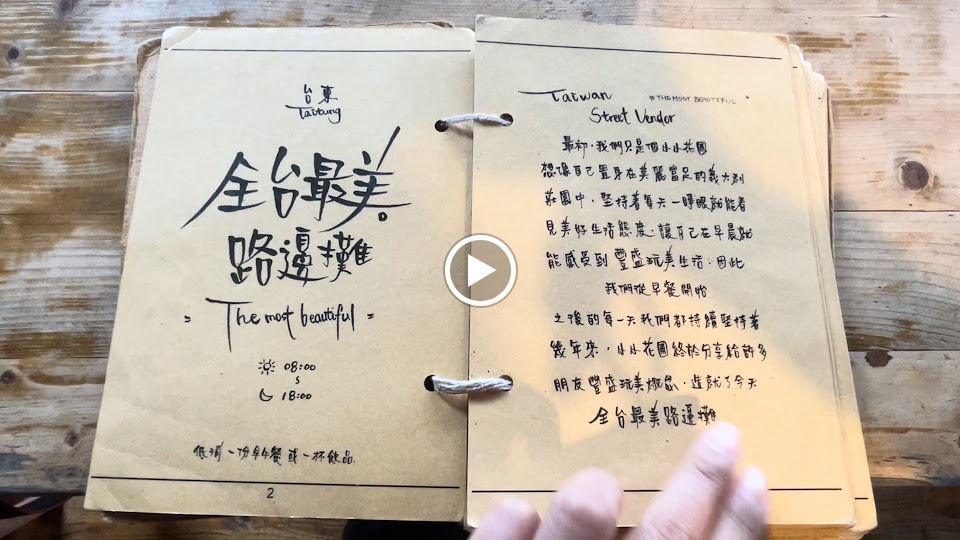 台東
Taitung
全台最美。
路邊攤
"The most beautiful"
08:00
18:00
低消一份早午餐 或 一杯飲品
2
Taiwan #THE MOST BEAUTIFUL
Street Vendor
最初,我們只是個小小花園
想像自己置身在美麗富足的義大利
莊園中,堅持著每天一睜眼就能看
見美好生活態度,讓自己在早晨就
能感受到豐盛玩美生活.因此
我們從早餐開始
之後的每一天我們都持續堅持著
幾年來,小小花園終於分享給許多
朋友豐盛玩美概念,造就了今天
全台最美路邊攤